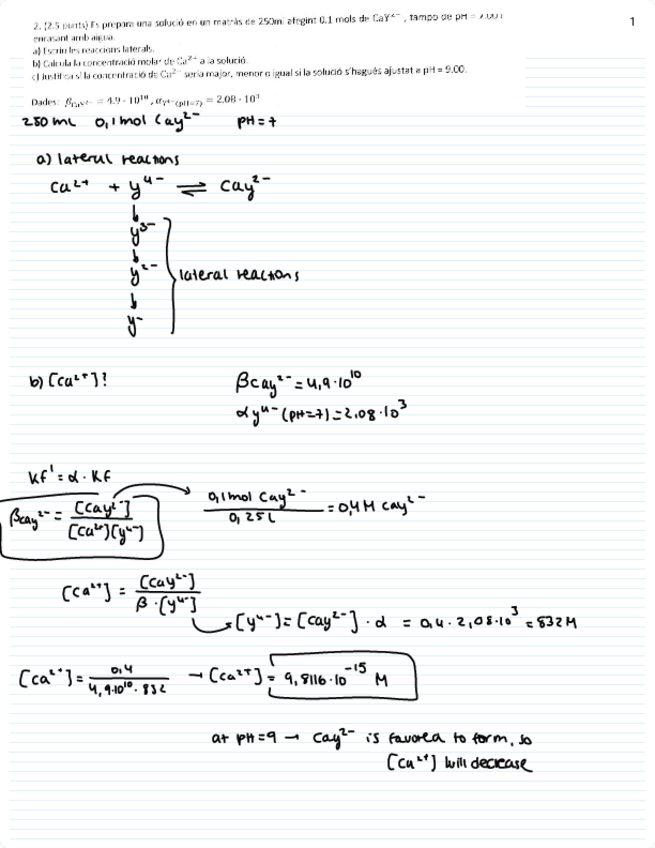 1
2. (2.5 punts) Es prepara una solució en un matràs de 250ml afegint 0.1 mols de CaY²⁻, tampó de pH = 7.00 i
enrasant amb aigua.
a) Escriu les reaccions laterals.
b) Calcula la concentració molar de Ca²⁺ a la solució.
c) Justifica si la concentració de Ca²⁺ seria major, menor o igual si la solució s'hagués ajustat a pH = 9.00.
Dades: β_CaY²⁻ = 4.9 · 10¹⁰, α_Y⁴⁻(pH=7) = 2.08 · 10³
250 mL 0,1 mol CaY²⁻ pH=7
a) lateral reactions
Ca²⁺ + y⁴⁻ ⇌ Cay²⁻
y³⁻
y²⁻ lateral reactions
y⁻
b) [Ca²⁺]?
βcay²⁻ = 4,9·10¹⁰
αy⁴⁻ (pH=7) = 2,08·10³
Kf' = α · Kf
βcay²⁻ = [Cay²⁻] / [Ca²⁺][y⁴⁻] → 0,1 mol Cay²⁻ / 0,25 L = 0,4 M Cay²⁻
[Ca²⁺] = [Cay²⁻] / β · [y⁴⁻]
→ [y⁴⁻] = [Cay²⁻] · α = 0,4 · 2,08·10³ = 832 M
[Ca²⁺] = 0,4 / 4,9·10¹⁰ · 832 → [Ca²⁺] = 9,8116·10⁻¹⁵ M
at pH=9 → Cay²⁻ is favored to form, so
[Ca²⁺] will decrease